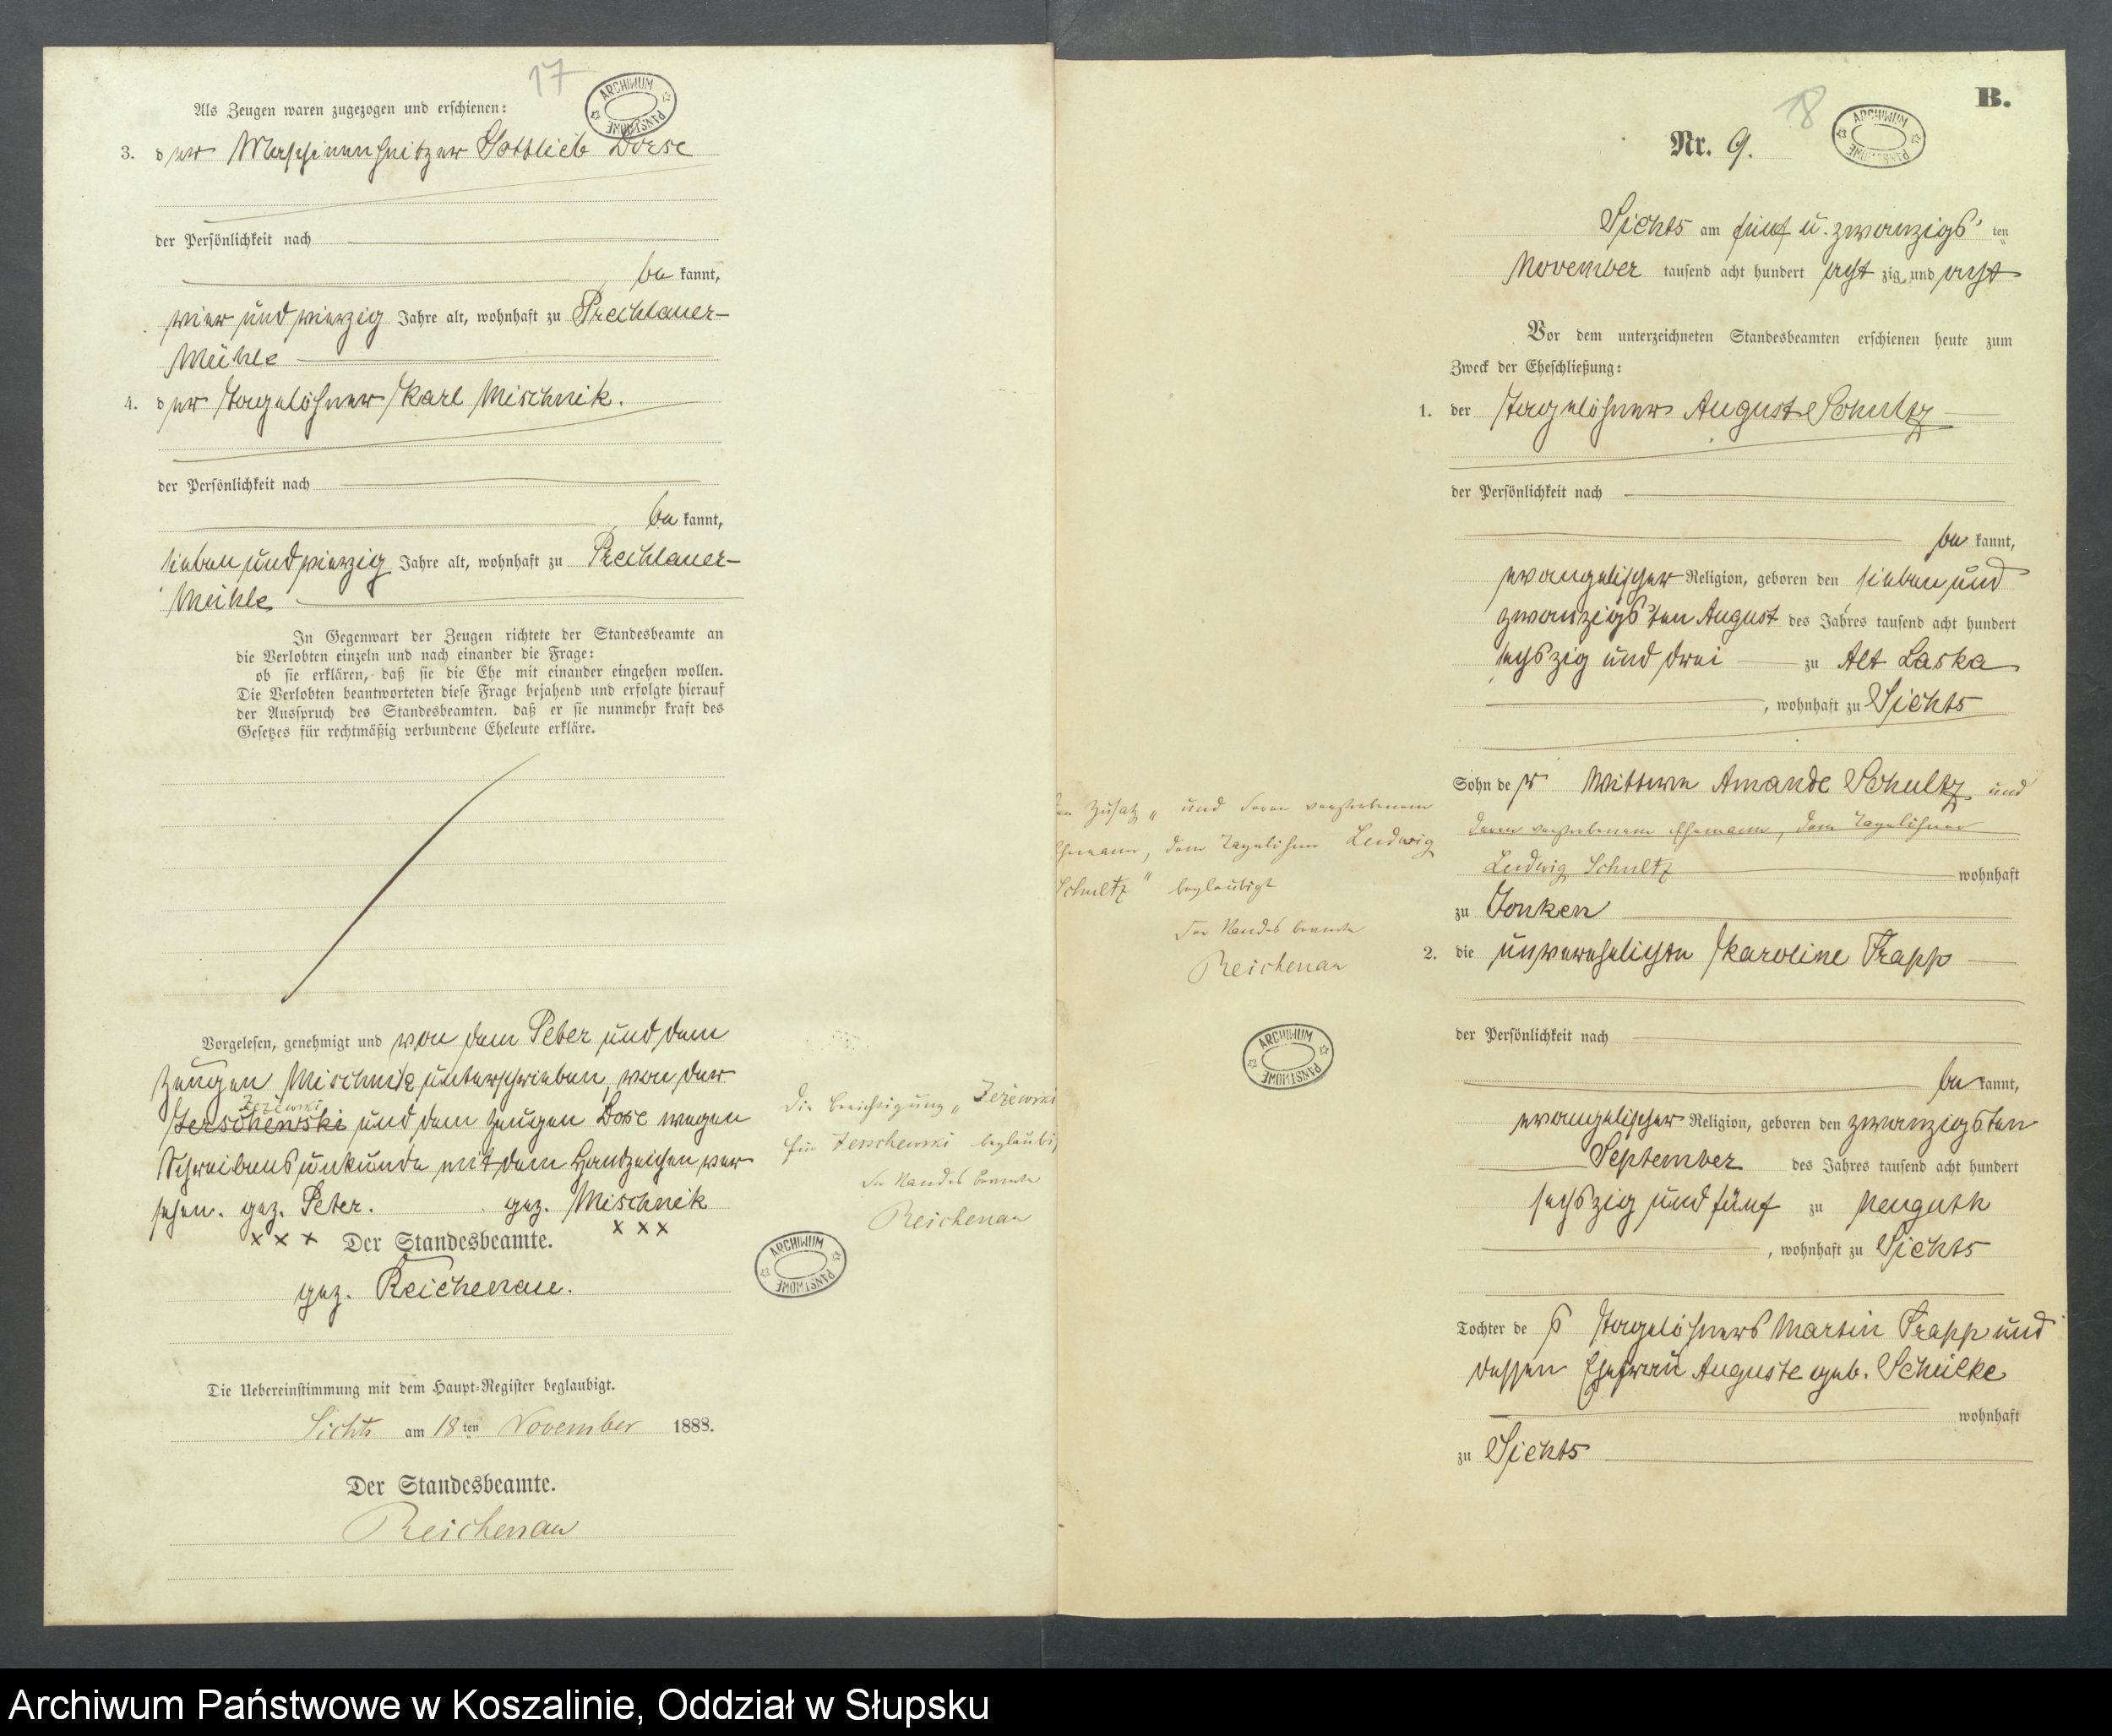 17
ARCHIWUM PAŃSTWOWE
Als Zeugen waren zugezogen und erschienen:
3. der Maschinenheitzer Gottlieb Dorse
der Persönlichkeit nach
be kannt,
vier und vierzig Jahre alt, wohnhaft zu Prechlauer-
Mühle
4. der Tagelöhner Karl Mischnik.
der Persönlichkeit nach
be kannt,
sieben und vierzig Jahre alt, wohnhaft zu Prechlauer-
Mühle
In Gegenwart der Zeugen richtete der Standesbeamte an
die Verlobten einzeln und nach einander die Frage:
ob sie erklären, daß sie die Ehe mit einander eingehen wollen.
Die Verlobten beantworteten diese Frage bejahend und erfolgte hierauf
der Ausspruch des Standesbeamten, daß er sie nunmehr kraft des
Gesetzes für rechtmäßig verbundene Eheleute erkläre.
Vorgelesen, genehmigt und von dem Peter und dem
Zeugen Mischnik unterschrieben, von der
Jezewski
Jerschewski und dem Zeugen Dose wegen
Schreibensunkunde mit dem Handzeichen ver
sehen. gez. Peter. gez. Mischnik
x x x Der Standesbeamte. x x x
gez. Reichenau.
Die Uebereinstimmung mit dem Haupt-Register beglaubigt.
Sichts am 18 ten November 1888.
Der Standesbeamte.
Reichenau
Die Berichtigung „Jezewski
für Jerschewski beglaubi
Der Standesbeamte
Reichenau
ARCHIWUM PAŃSTWOWE
18
B.
Nr. 9.
ARCHIWUM PAŃSTWOWE
Sichts am fünf u. zwanzigs ten
November tausend acht hundert acht zig und acht
Vor dem unterzeichneten Standesbeamten erschienen heute zum
Zweck der Eheschließung:
1. der Tagelöhner August Schultz
der Persönlichkeit nach
be kannt,
evangelischer Religion, geboren den sieben und
zwanzigsten August des Jahres tausend acht hundert
sechszig und drei zu Alt Laska
, wohnhaft zu Sichts
Sohn der Wittwe Amande Schultz und
deren verstorbenem Ehemann, dem Tagelöhner
Ludwig Schultz wohnhaft
zu Jonken
2. die unverehelichte Karoline Trapp
der Persönlichkeit nach
be kannt,
evangelischer Religion, geboren den zwanzigsten
September des Jahres tausend acht hundert
sechszig und fünf zu Neuguth
, wohnhaft zu Sichts
Tochter des Tagelöhners Martin Trapp und
dessen Ehefrau Auguste geb. Schülke
wohnhaft
zu Sichts
en Zusatz „und deren verstorbenem
Ehemann, dem Tagelöhner Ludwig
Schultz" beglaubigt
Der Standesbeamte
Reichenau
ARCHIWUM PAŃSTWOWE
Archiwum Państwowe w Koszalinie, Oddział w Słupsku